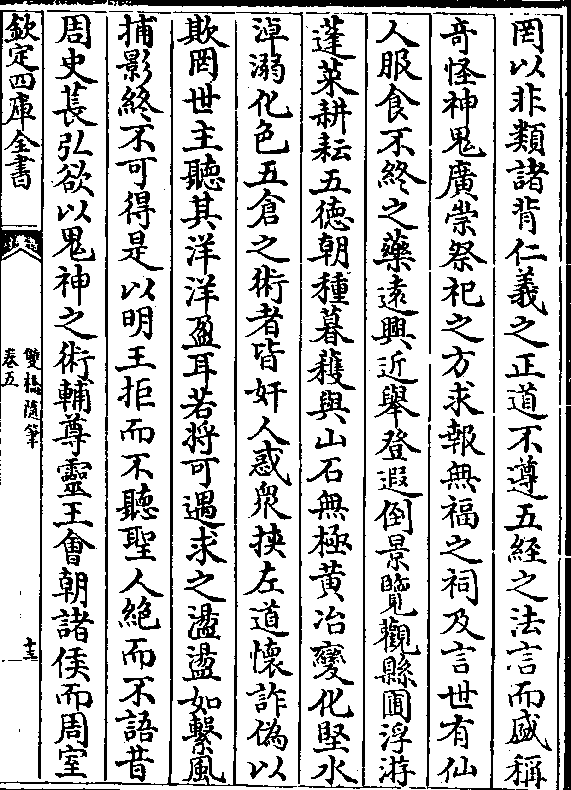 罔以非類諸背仁義之正道不遵五經之法言而盛稱
奇怪神鬼廣崇祭祀之方求報無福之祠及言世有仙
人服食不終之藥遠興近舉登遐倒景覽觀縣圃浮游
蓬萊耕耘五徳朝種暮穫與山石無極黄冶變化堅氷
淖溺化色五倉之術者皆奸人惑衆挾左道懷詐偽以
欺罔世主聽其洋洋盈耳若将可遇求之盪盪如繫風
捕影終不可得是以明王拒而不聽聖人絶而不語昔
周史萇弘欲以鬼神之術輔尊靈王會朝諸侯而周室
欽定四庫全書
雙橋隨筆
卷五
十三